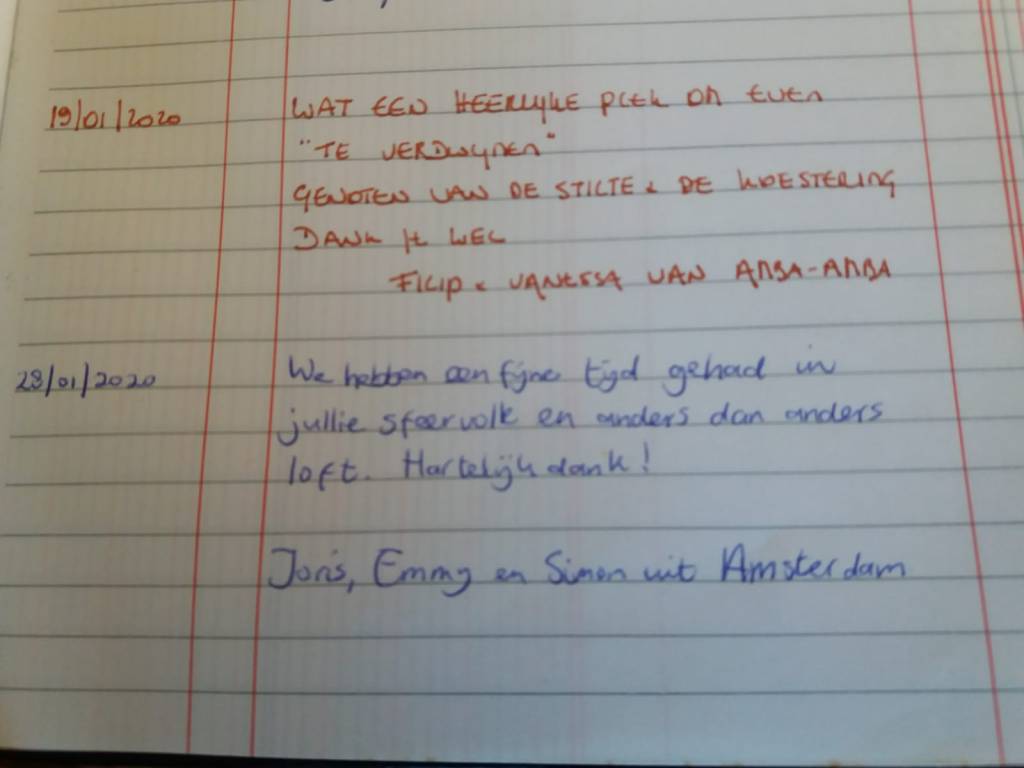 19/01/2020 WAT EEN HEERLIJKE PLEK OM EVEN
"TE VERDWIJNEN"
GENOTEN VAN DE STILTE & DE KOESTERING
DANK JE WEL
FILIP & VANESSA VAN
23/01/2020 We hebben een fijne tijd gehad in
jullie sfeervolle en anders dan anders
loft. Hartelijk dank!
Joris, Emmy en Simon uit Amsterdam